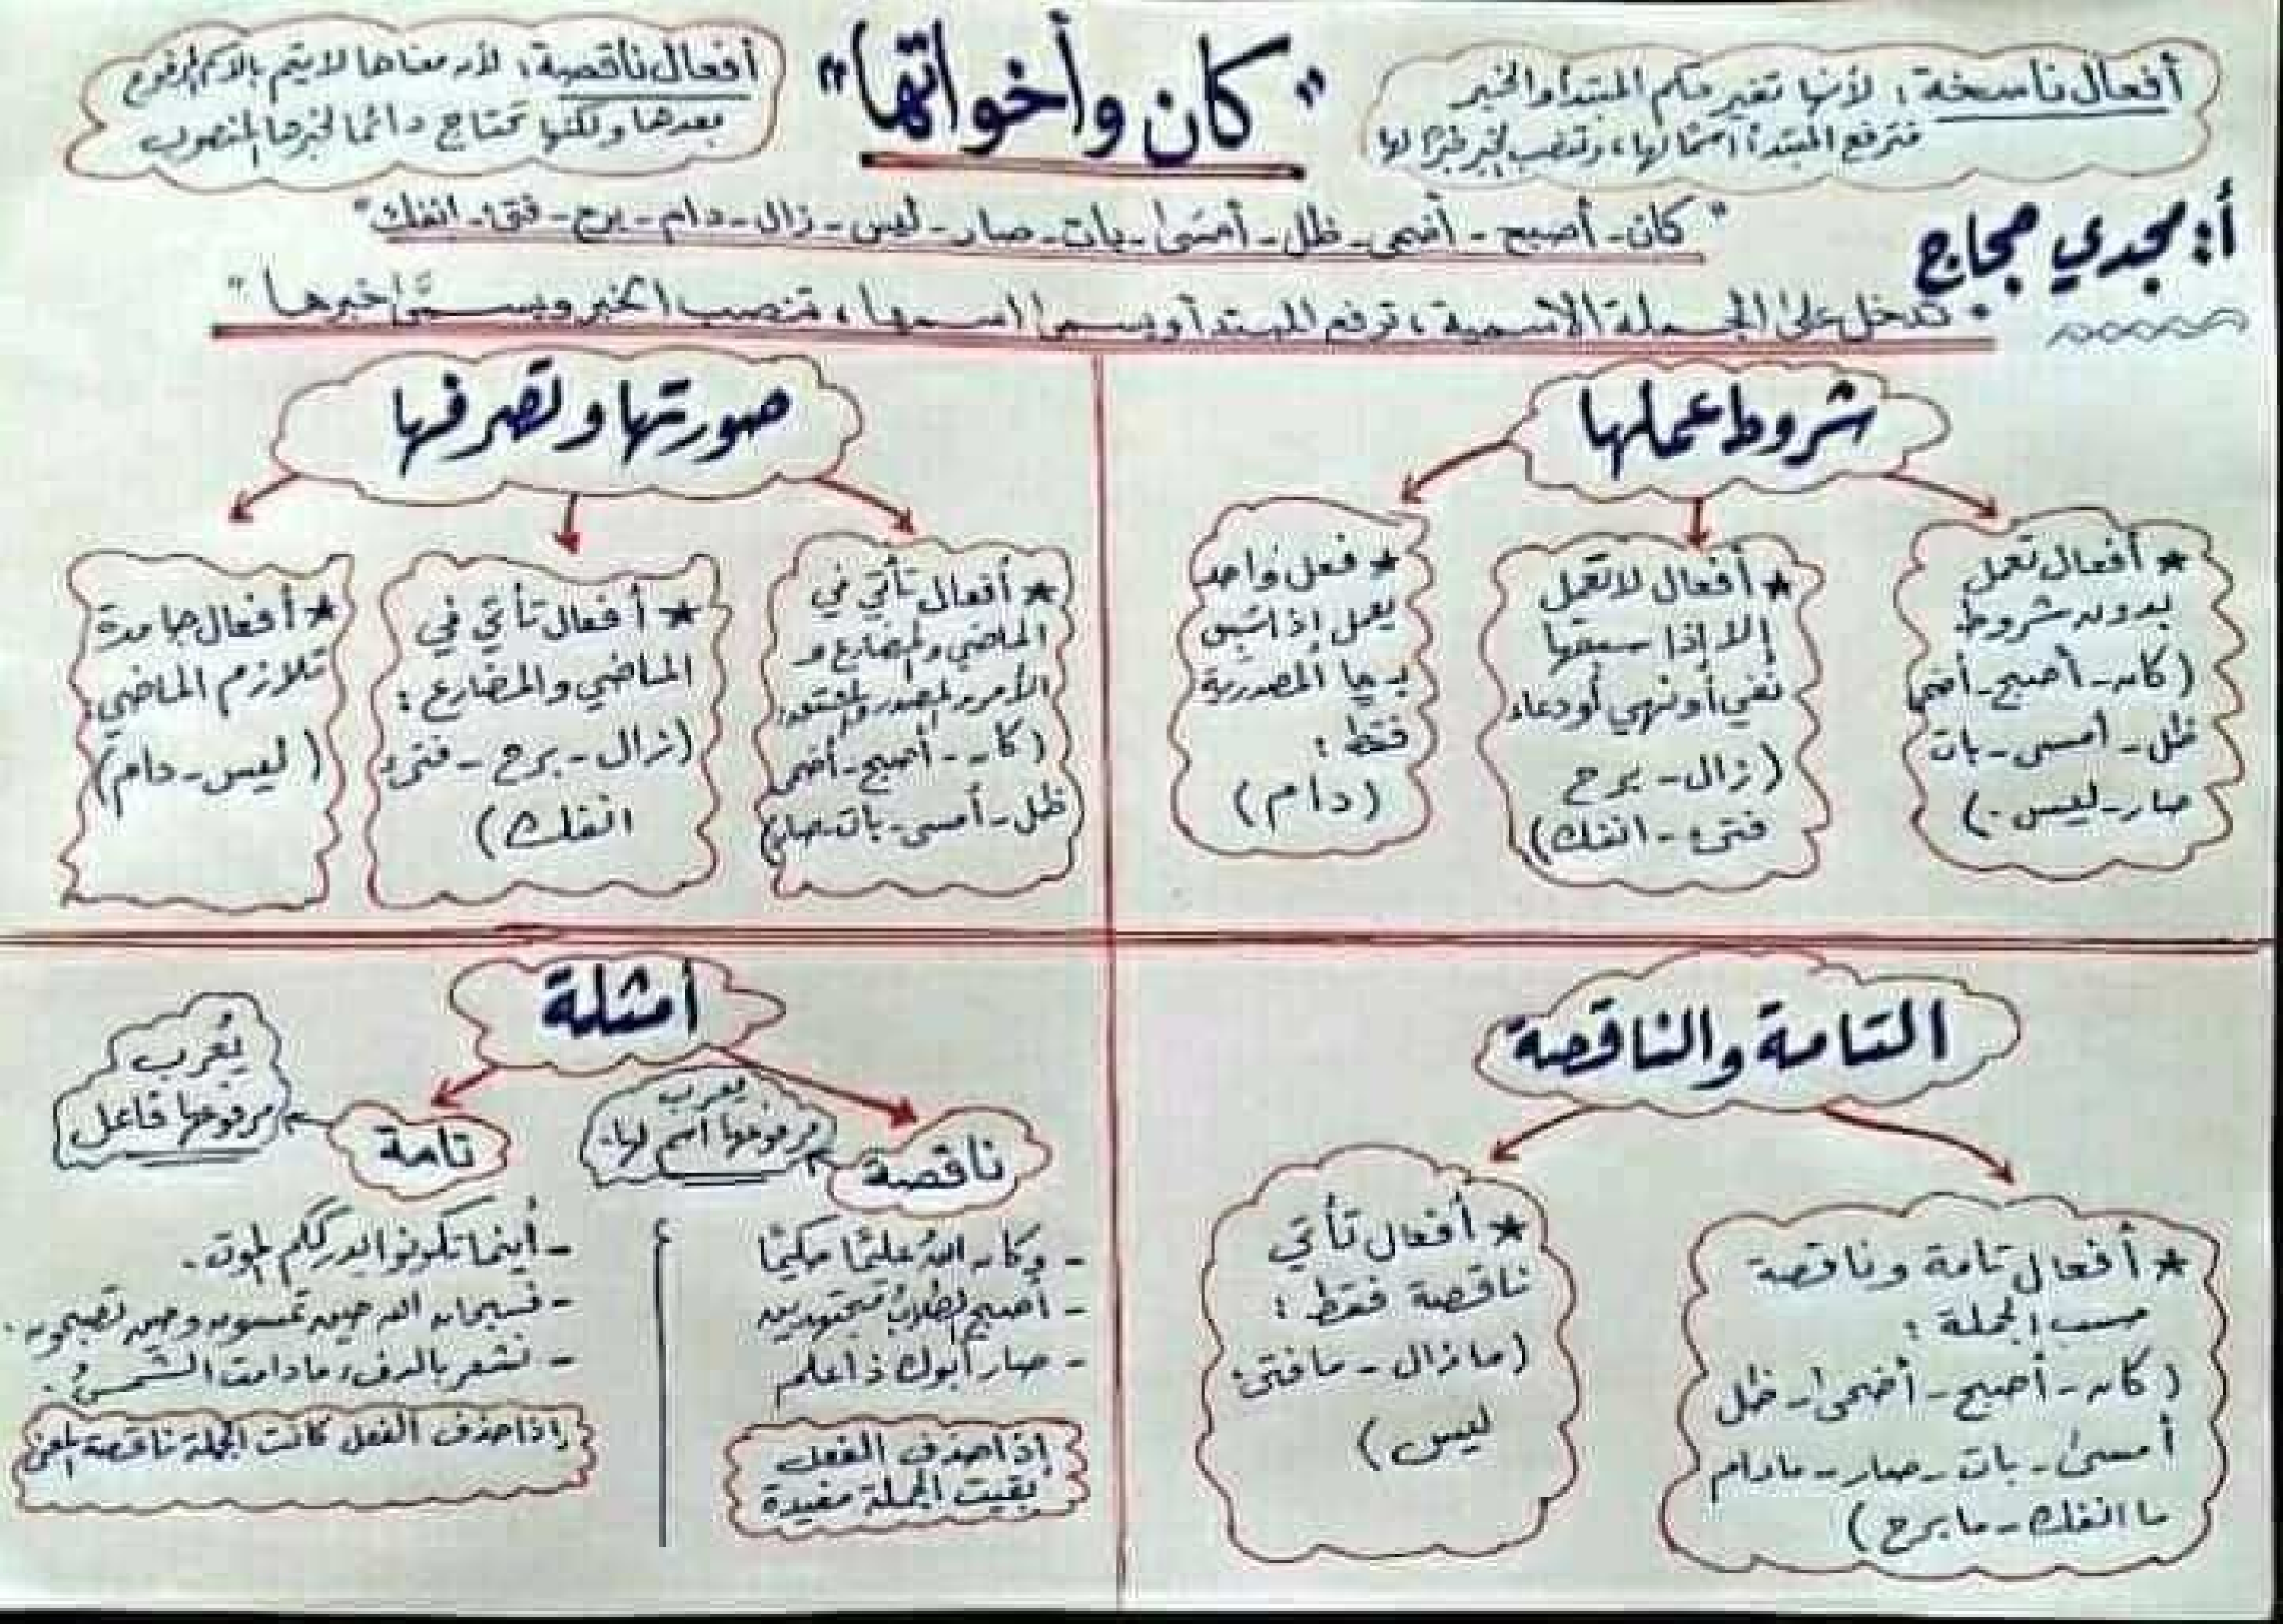 "كان وأخواتها"
أفعال ناسخة: لأنها تغير حكم المبتدأ والخبر
فترفع المبتدأ اسمًا لها، وتنصب الخبر خبرًا لها
أفعال ناقصة: لأن معناها لا يتم بالاسم المرفوع
بعدها ولكنها تحتاج دائما لخبرها المنصوب
أ: مجدي حجاج
"كان - أصبح - أضحى - ظل - أمسى - بات - صار - ليس - زال - دام - برح - فتئ - انفك"
"تدخل على الجملة الاسمية، ترفع المبتدأ ويسمى اسمها، تنصب الخبر ويسمَّى خبرها"
شروط عملها
★ أفعال تعمل
بدون شروط
(كان - أصبح - أضحى
ظل - أمسى - بات
صار - ليس -)
★ أفعال لا تعمل
إلا إذا سبقها
نفي أو نهي أو دعاء
(زال - برح
فتئ - انفك)
★ فعل واحد
يعمل إذا سُبق
بـ ما المصدرية
فقط:
(دام)
صورتها وتصرفها
★ أفعال تأتي في
الماضي والمضارع و
الأمر والمصدر والمشتق:
(كان - أصبح - أضحى
ظل - أمسى - بات - صار)
★ أفعال تأتي في
الماضي والمضارع:
(زال - برح - فتئ
انفك)
★ أفعال جامدة
تلازم الماضي:
(ليس - دام)
التامة والناقصة
★ أفعال تامة وناقصة
حسب الجملة:
(كان - أصبح - أضحى - ظل
أمسى - بات - صار - مادام
ما انفك - ما برح)
★ أفعال تأتي
ناقصة فقط:
(ما زال - ما فتئ
ليس)
أمثلة
ناقصة
يعرب
مرفوعها اسم لها.
- وكان اللهُ عليمًا حكيمًا
- أصبح الطلابُ مجتهدين
- صار أبوك ذا علم
إذا حذف الفعل
بقيت الجملة مفيدة
تامة
يُعرب
مرفوعها فاعل
- أينما تكونوا يدرككم الموت.
- فسبحان الله حين تمسون وحين تصبحون.
- نشعر بالدفء ما دامت الشمسُ.
إذا حذف الفعل كانت الجملة ناقصة المعنى